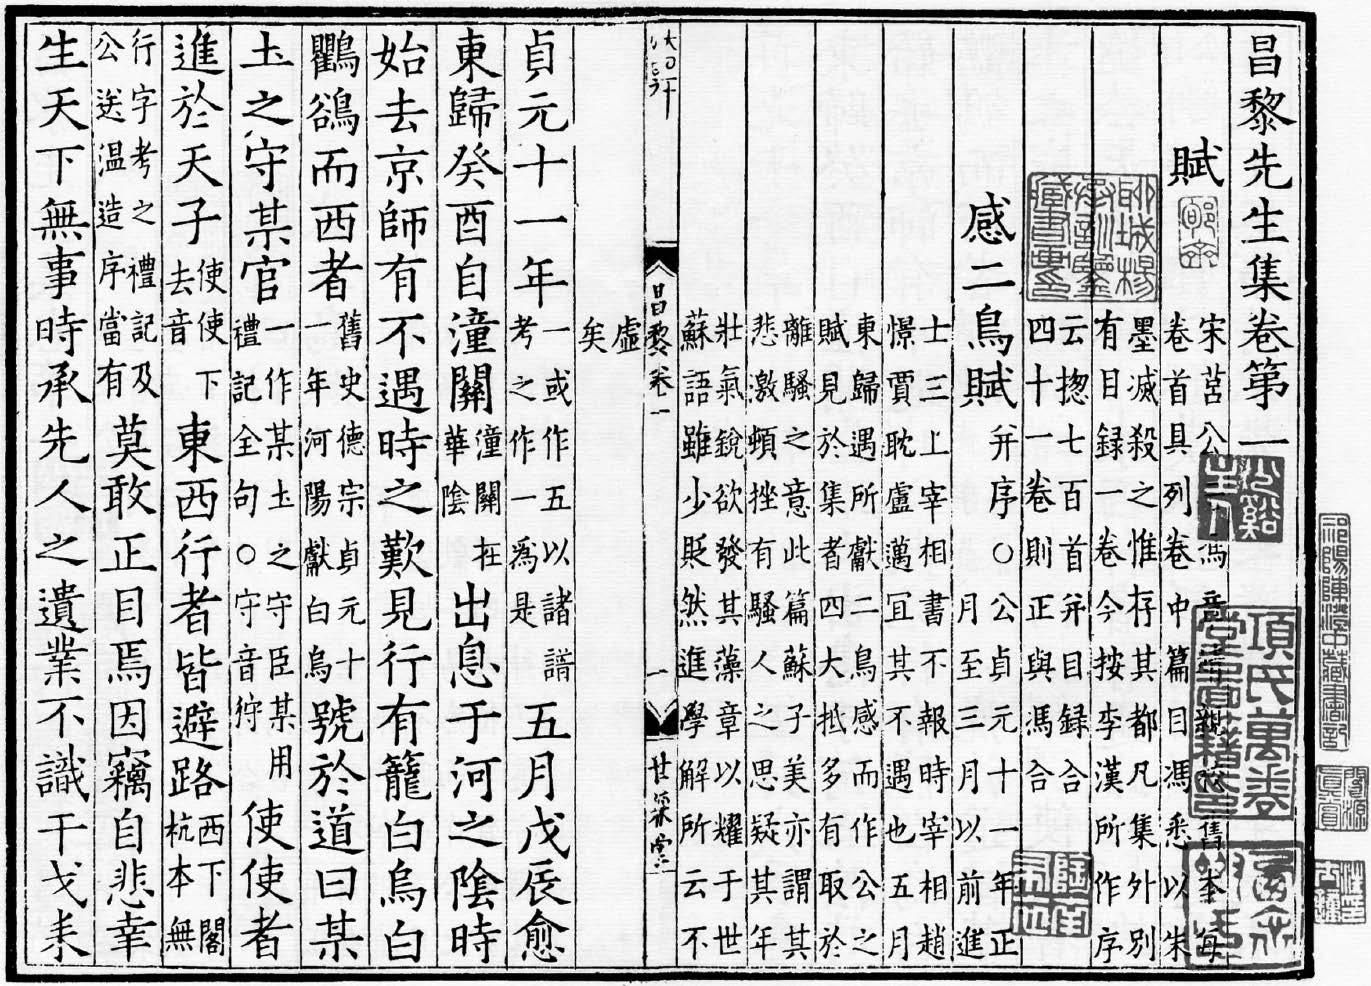 昌黎先生集卷第一
賦
宋莒公
卷首具列卷中篇目馮悉以朱
墨滅殺之惟存其都凡集外別
有目録一卷今按李漢所作序
云揔七百首并目録合
四十一卷則正與馮合
感二鳥賦并序○公貞元十一年正
月至三月以前進
士三上宰相書不報時宰相趙
憬賈耽盧邁冝其不遇也五月
東歸遇所獻二鳥感而作公之
賦見於集者四大抵多有取於
離騷之意此篇蘇子美亦謂其
悲激頓挫有騷人之思疑其年
壯氣銳欲發其藻章以耀于世
蘇語雖少貶然進學解所云不
昌黎卷一
一
世綵堂
虛
矣
貞元十一年一或作五以諸譜
考之作一爲是五月戊辰愈
東歸癸酉自潼關潼關在
華陰出息于河之陰時
始去京師有不遇時之歎見行有籠白烏白
鸜鵒而西者舊史德宗貞元十
一年河陽獻白烏號於道曰某
土之守某官一作某土之守臣某用
禮記全句○守音狩使使者
進於天子使使下
去音東西行者皆避路西下閣
杭本無
行字考之禮記及
公送温造序當有莫敢正目焉因竊自悲幸
生天下無事時承先人之遺業不識干戈耒